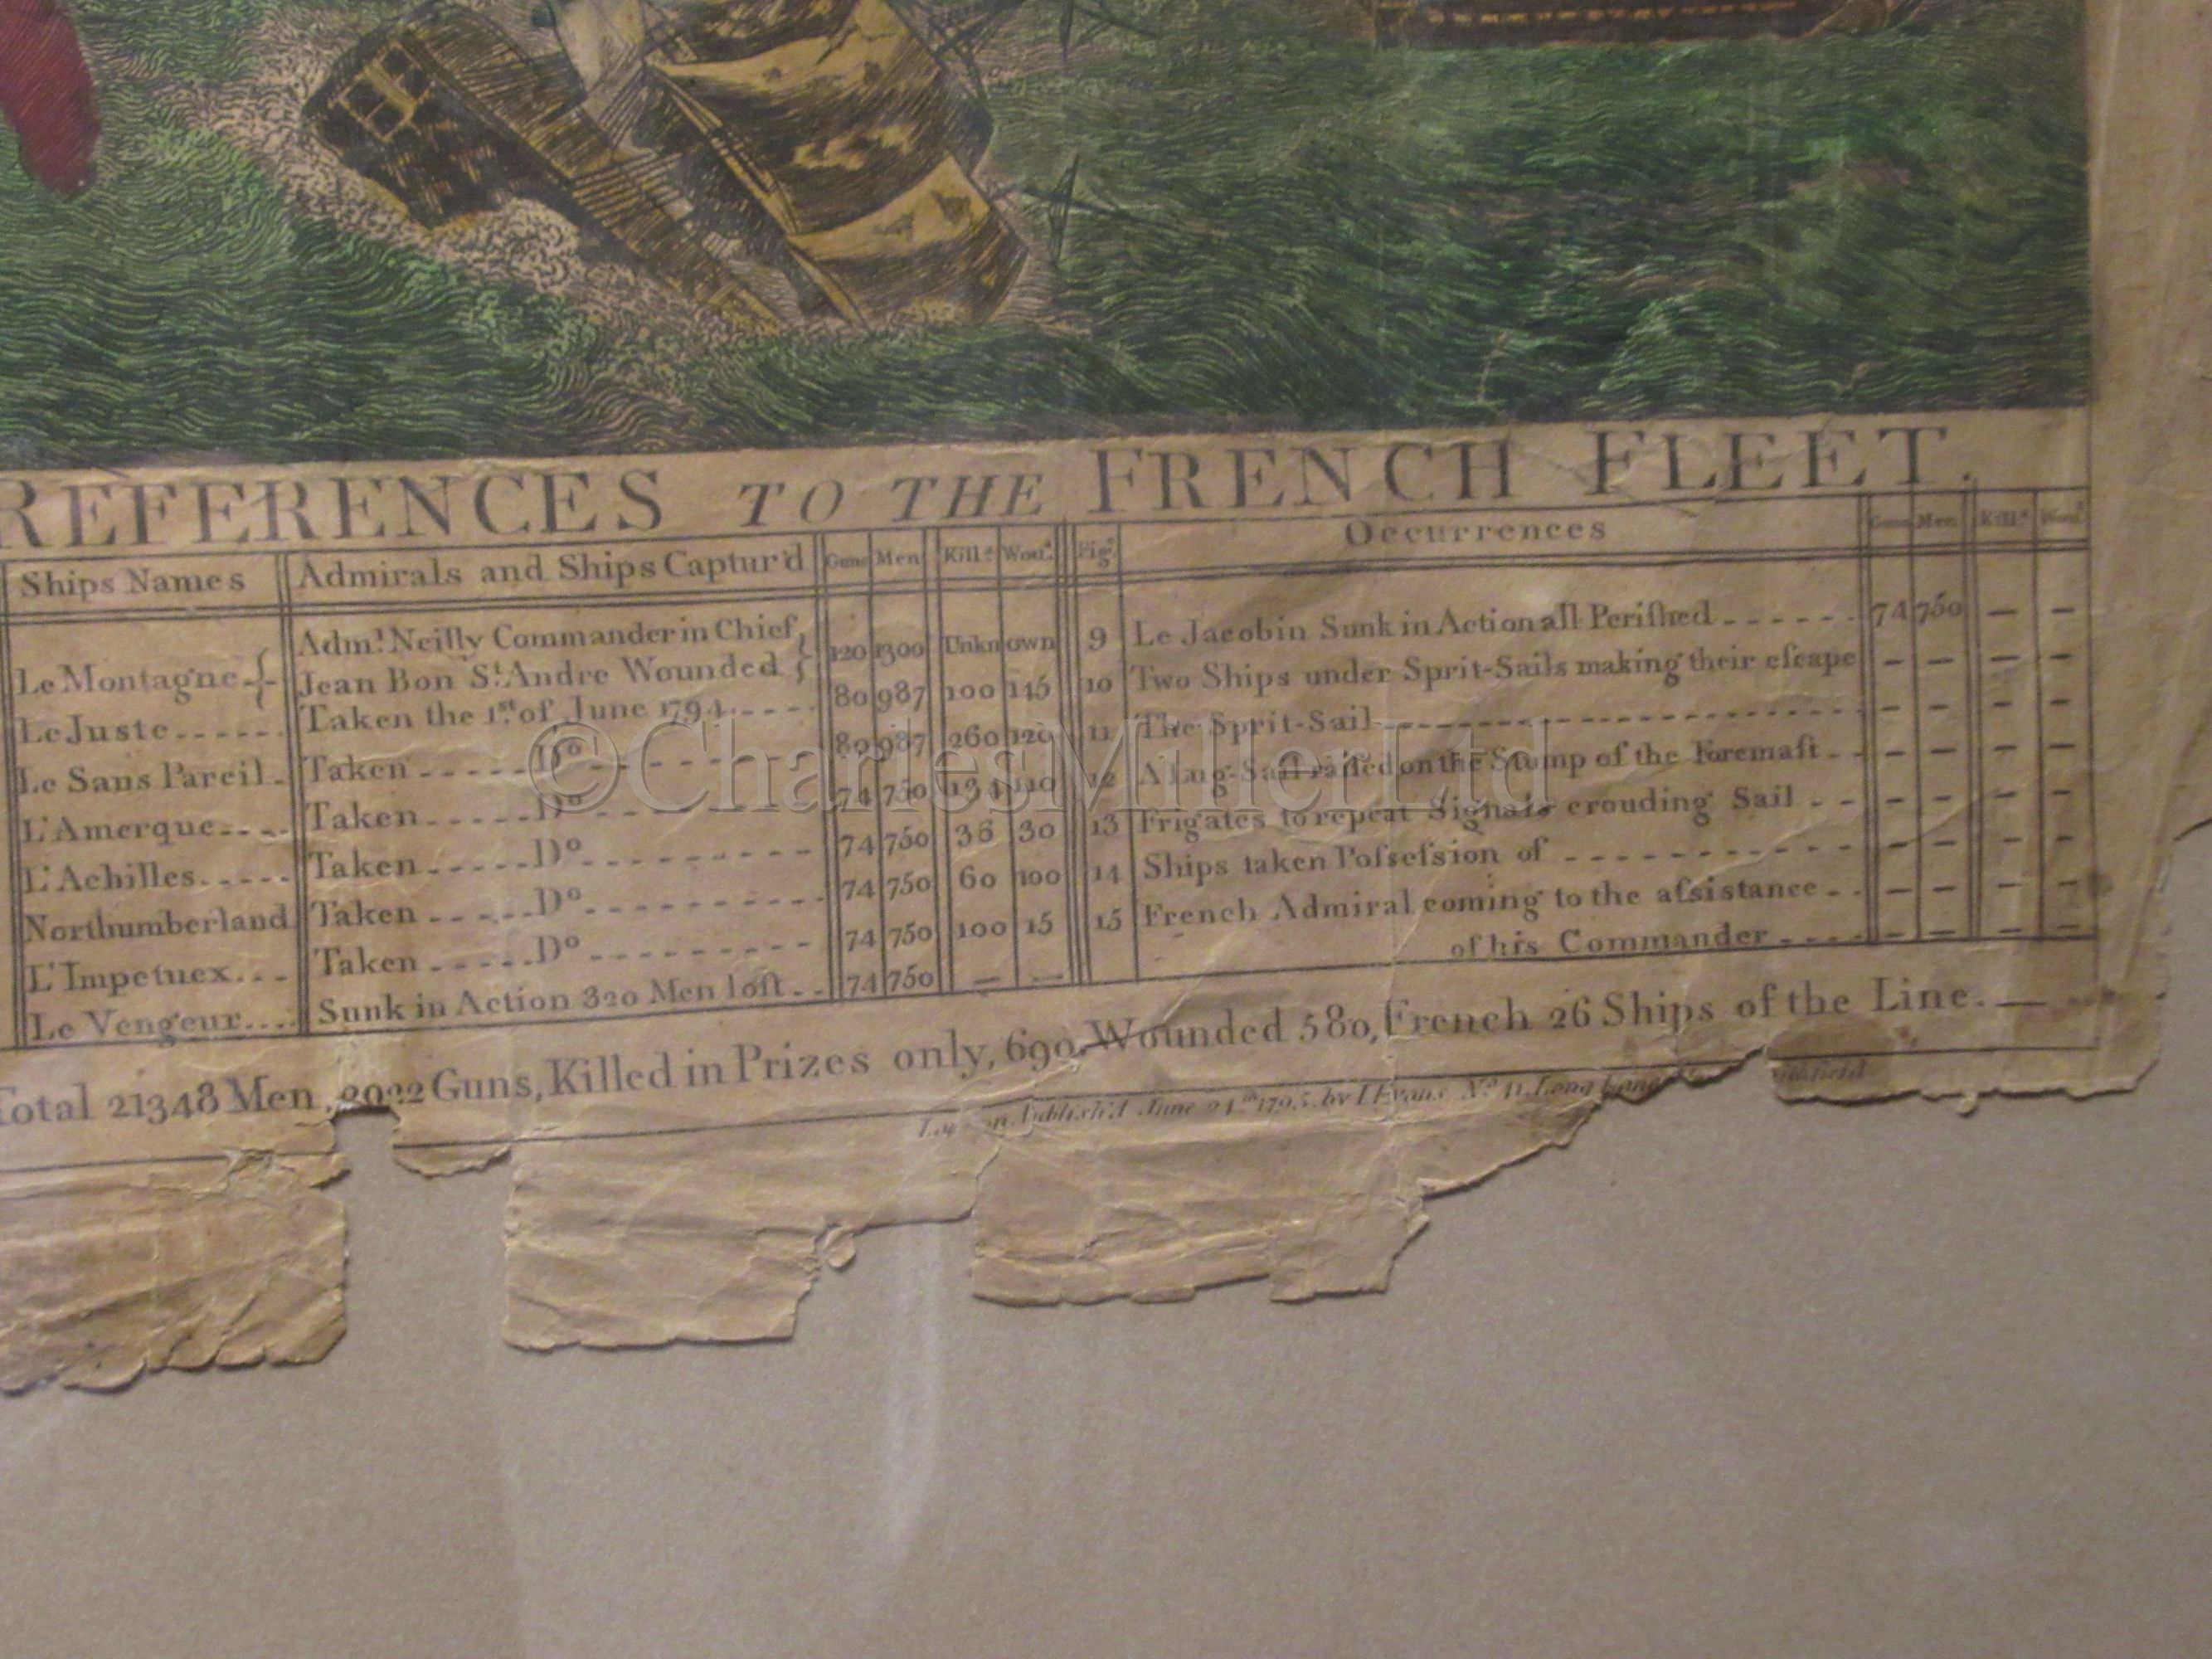 REFERENCES TO THE FRENCH FLEET.
Ships Names Admirals and Ships Captur'd Guns Men Kill.d Wou.d
Le Montagne Adm.l Neilly Commander in Chief, Jean Bon S.t Andre Wounded 120 1300 Unknown
Le Juste Taken the 1st. of June 1794 80 987 100 145
Le Sans Pareil Taken D.o 80 987 260 120
L'Amerque Taken D.o 74 750 134 110
L'Achilles Taken D.o 74 750 36 30
Northumberland Taken D.o 74 750 60 100
L'Impetuex Taken D.o 74 750 100 15
Le Vengeur Sunk in Action 320 Men lost 74 750 — —
Fig.s Occurrences Guns Men Kill.d Wou.d
9 Le Jacobin Sunk in Action all Perished 74 750 — —
10 Two Ships under Sprit-Sails making their escape — — — —
11 The Sprit-Sail — — — —
12 A Lug-Sail raised on the Stump of the Foremast — — — —
13 Frigates to repeat Signals crouding Sail — — — —
14 Ships taken Possession of — — — —
15 French Admiral coming to the assistance — — — —
of his Commander — — — —
Total 21348 Men, Guns, Killed in Prizes only, 690, Wounded 580, French 26 Ships of the Line. —
Publish'd June 24th 1795, by I Evans N.o 41, Long Lane
©CharlesMillerLtd